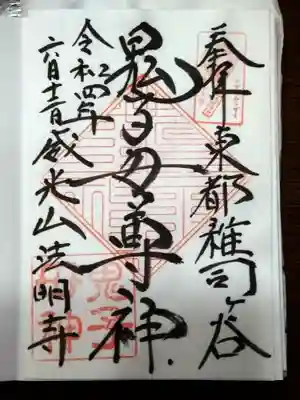 奉拝 東都雑司ヶ谷
鬼子母尊神
令和四年
六月十二日 威光山法明寺